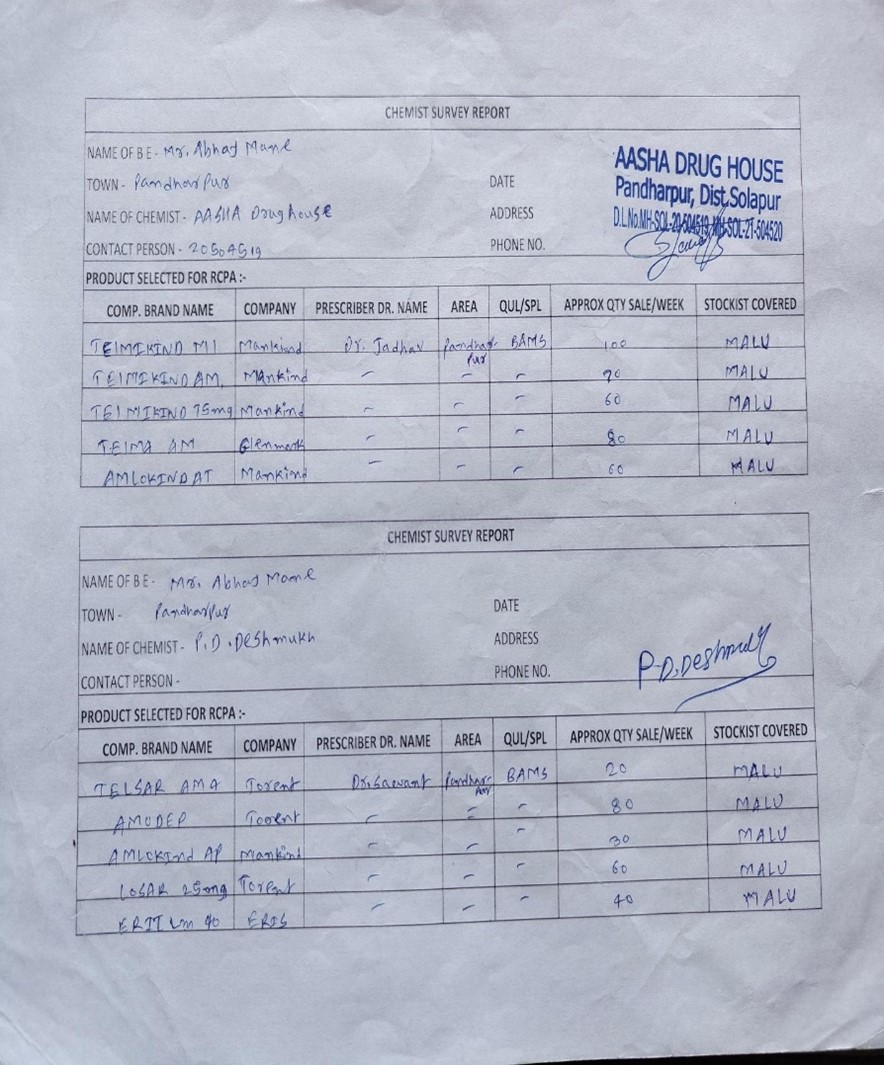 CHEMIST SURVEY REPORT
NAME OF B E - Mr. Abhay Mane
TOWN - Pandharpur DATE
NAME OF CHEMIST - AASHA Drug house ADDRESS
CONTACT PERSON - 20504519 PHONE NO.
AASHA DRUG HOUSE
Pandharpur, Dist.Solapur
D.L.No.MH-SOL-20-504519, MH-SOL-21-504520
PRODUCT SELECTED FOR RCPA :-
COMP. BRAND NAME COMPANY PRESCRIBER DR. NAME AREA QUL/SPL APPROX QTY SALE/WEEK STOCKIST COVERED
TElMIKIND Mankind Dr. Jadhav Pandharpur BAMS 100 MALU
TElMIKIND AM Mankind - - - 70 MALU
TElMIKIND mg Mankind - - - 60 MALU
TElMA AM Glenmark - - - 80 MALU
AMLOKIND AT Mankind - - - 60 MALU
CHEMIST SURVEY REPORT
NAME OF B E - Mr. Abhay Mane
TOWN - Pandharpur DATE
NAME OF CHEMIST - P.D. DEShmukh ADDRESS
CONTACT PERSON - PHONE NO.
P.D.Deshmukh
PRODUCT SELECTED FOR RCPA :-
COMP. BRAND NAME COMPANY PRESCRIBER DR. NAME AREA QUL/SPL APPROX QTY SALE/WEEK STOCKIST COVERED
TELSAR Torent Dr. Sawant Pandharpur BAMS 20 MALU
AMODEP Torent - - - 80 MALU
AMLOKInd AP Mankind - - - 30 MALU
LOSAR 25mg Torent - - - 60 MALU
ERIT Lm 40 ERIS - - - 40 MALU